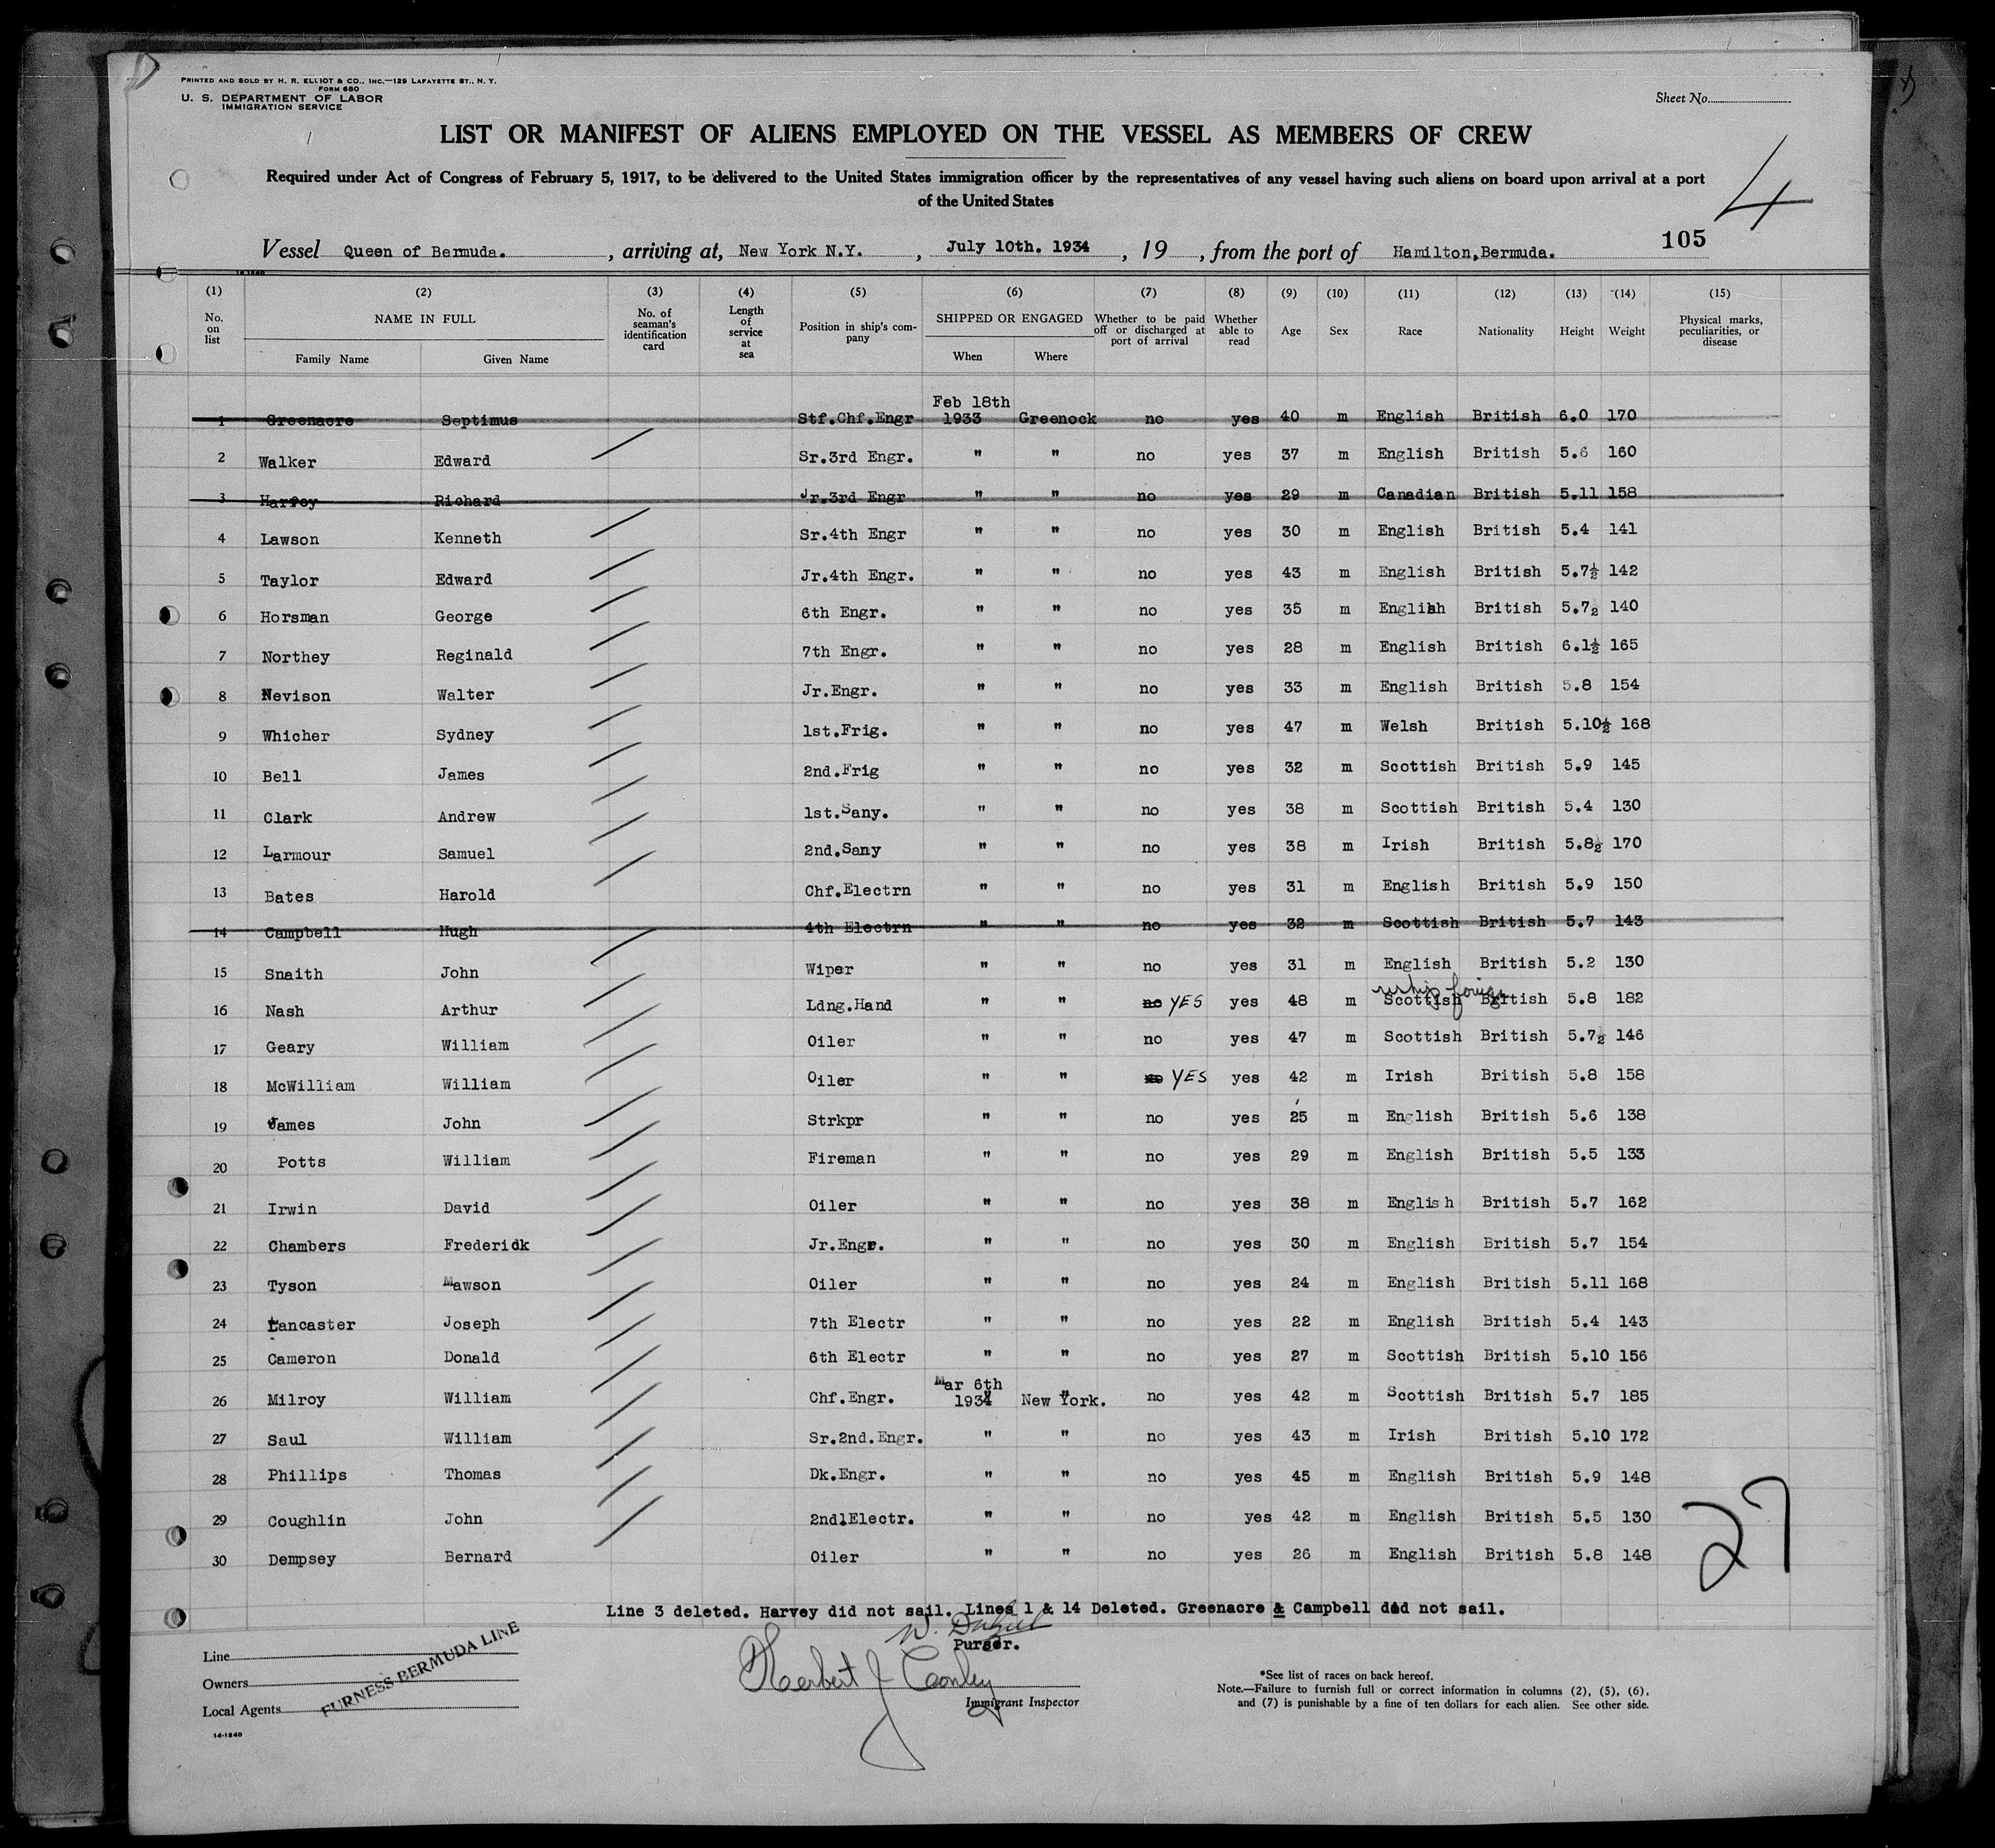 PRINTED AND SOLD BY H. R. ELLIOT & CO., INC.—129 LAFAYETTE ST., N. Y.
FORM 680
U. S. DEPARTMENT OF LABOR
IMMIGRATION SERVICE
Sheet No.
LIST OR MANIFEST OF ALIENS EMPLOYED ON THE VESSEL AS MEMBERS OF CREW
Required under Act of Congress of February 5, 1917, to be delivered to the United States immigration officer by the representatives of any vessel having such aliens on board upon arrival at a port
of the United States
4
105
Vessel Queen of Bermuda. , arriving at, New York N.Y. , July 10th. 1934 , 19 , from the port of Hamilton,Bermuda.
14-1240
(1) (2) (3) (4) (5) (6) (7) (8) (9) (10) (11) (12) (13) (14) (15)
No. on list NAME IN FULL Family Name Given Name No. of seaman's identification card Length of service at sea Position in ship's company SHIPPED OR ENGAGED When Where Whether to be paid off or discharged at port of arrival Whether able to read Age Sex Race Nationality Height Weight Physical marks, peculiarities, or disease
Feb 18th
1 Greenacre Septimus Stf.Chf.Engr 1933 Greenock no yes 40 m English British 6.0 170
2 Walker Edward Sr.3rd Engr. " " no yes 37 m English British 5.6 160
3 Harvey Richard Jr.3rd Engr " " no yes 29 m Canadian British 5.11 158
4 Lawson Kenneth Sr.4th Engr " " no yes 30 m English British 5.4 141
5 Taylor Edward Jr.4th Engr. " " no yes 43 m English British 5.7½ 142
6 Horsman George 6th Engr. " " no yes 35 m English British 5.7½ 140
7 Northey Reginald 7th Engr. " " no yes 28 m English British 6.1½ 165
8 Nevison Walter Jr.Engr. " " no yes 33 m English British 5.8 154
9 Whicher Sydney 1st.Frig. " " no yes 47 m Welsh British 5.10½ 168
10 Bell James 2nd.Frig " " no yes 32 m Scottish British 5.9 145
11 Clark Andrew 1st.Sany. " " no yes 38 m Scottish British 5.4 130
12 Larmour Samuel 2nd.Sany " " no yes 38 m Irish British 5.8½ 170
13 Bates Harold Chf.Electrn " " no yes 31 m English British 5.9 150
14 Campbell Hugh 4th Electrn " " no yes 32 m Scottish British 5.7 143
15 Snaith John Wiper " " no yes 31 m English British 5.2 130
reship foreign
16 Nash Arthur Ldng.Hand " " no YES yes 48 m Scottish British 5.8 182
17 Geary William Oiler " " no yes 47 m Scottish British 5.7½ 146
18 McWilliam William Oiler " " no YES yes 42 m Irish British 5.8 158
19 James John Strkpr " " no yes 25 m English British 5.6 138
20 Potts William Fireman " " no yes 29 m English British 5.5 133
21 Irwin David Oiler " " no yes 38 m English British 5.7 162
22 Chambers Frederick Jr.Engr. " " no yes 30 m English British 5.7 154
23 Tyson Mawson Oiler " " no yes 24 m English British 5.11 168
24 Lancaster Joseph 7th Electr " " no yes 22 m English British 5.4 143
25 Cameron Donald 6th Electr " " no yes 27 m Scottish British 5.10 156
Mar 6th
26 Milroy William Chf.Engr. 1934 New York. no yes 42 m Scottish British 5.7 185
27 Saul William Sr.2nd.Engr. " " no yes 43 m Irish British 5.10 172
28 Phillips Thomas Dk.Engr. " " no yes 45 m English British 5.9 148
29 Coughlin John 2nd1Electr. " " no yes 42 m English British 5.5 130
30 Dempsey Bernard Oiler " " no yes 26 m English British 5.8 148
27
Line 3 deleted. Harvey did not sail. Lines 1 & 14 Deleted. Greenacre & Campbell did not sail.
Purser.
Line
Owners
Local Agents
FURNESS BERMUDA LINE
14-1240
Herbert J Conley
Immigrant Inspector
*See list of races on back hereof.
Note.—Failure to furnish full or correct information in columns (2), (5), (6),
and (7) is punishable by a fine of ten dollars for each alien. See other side.